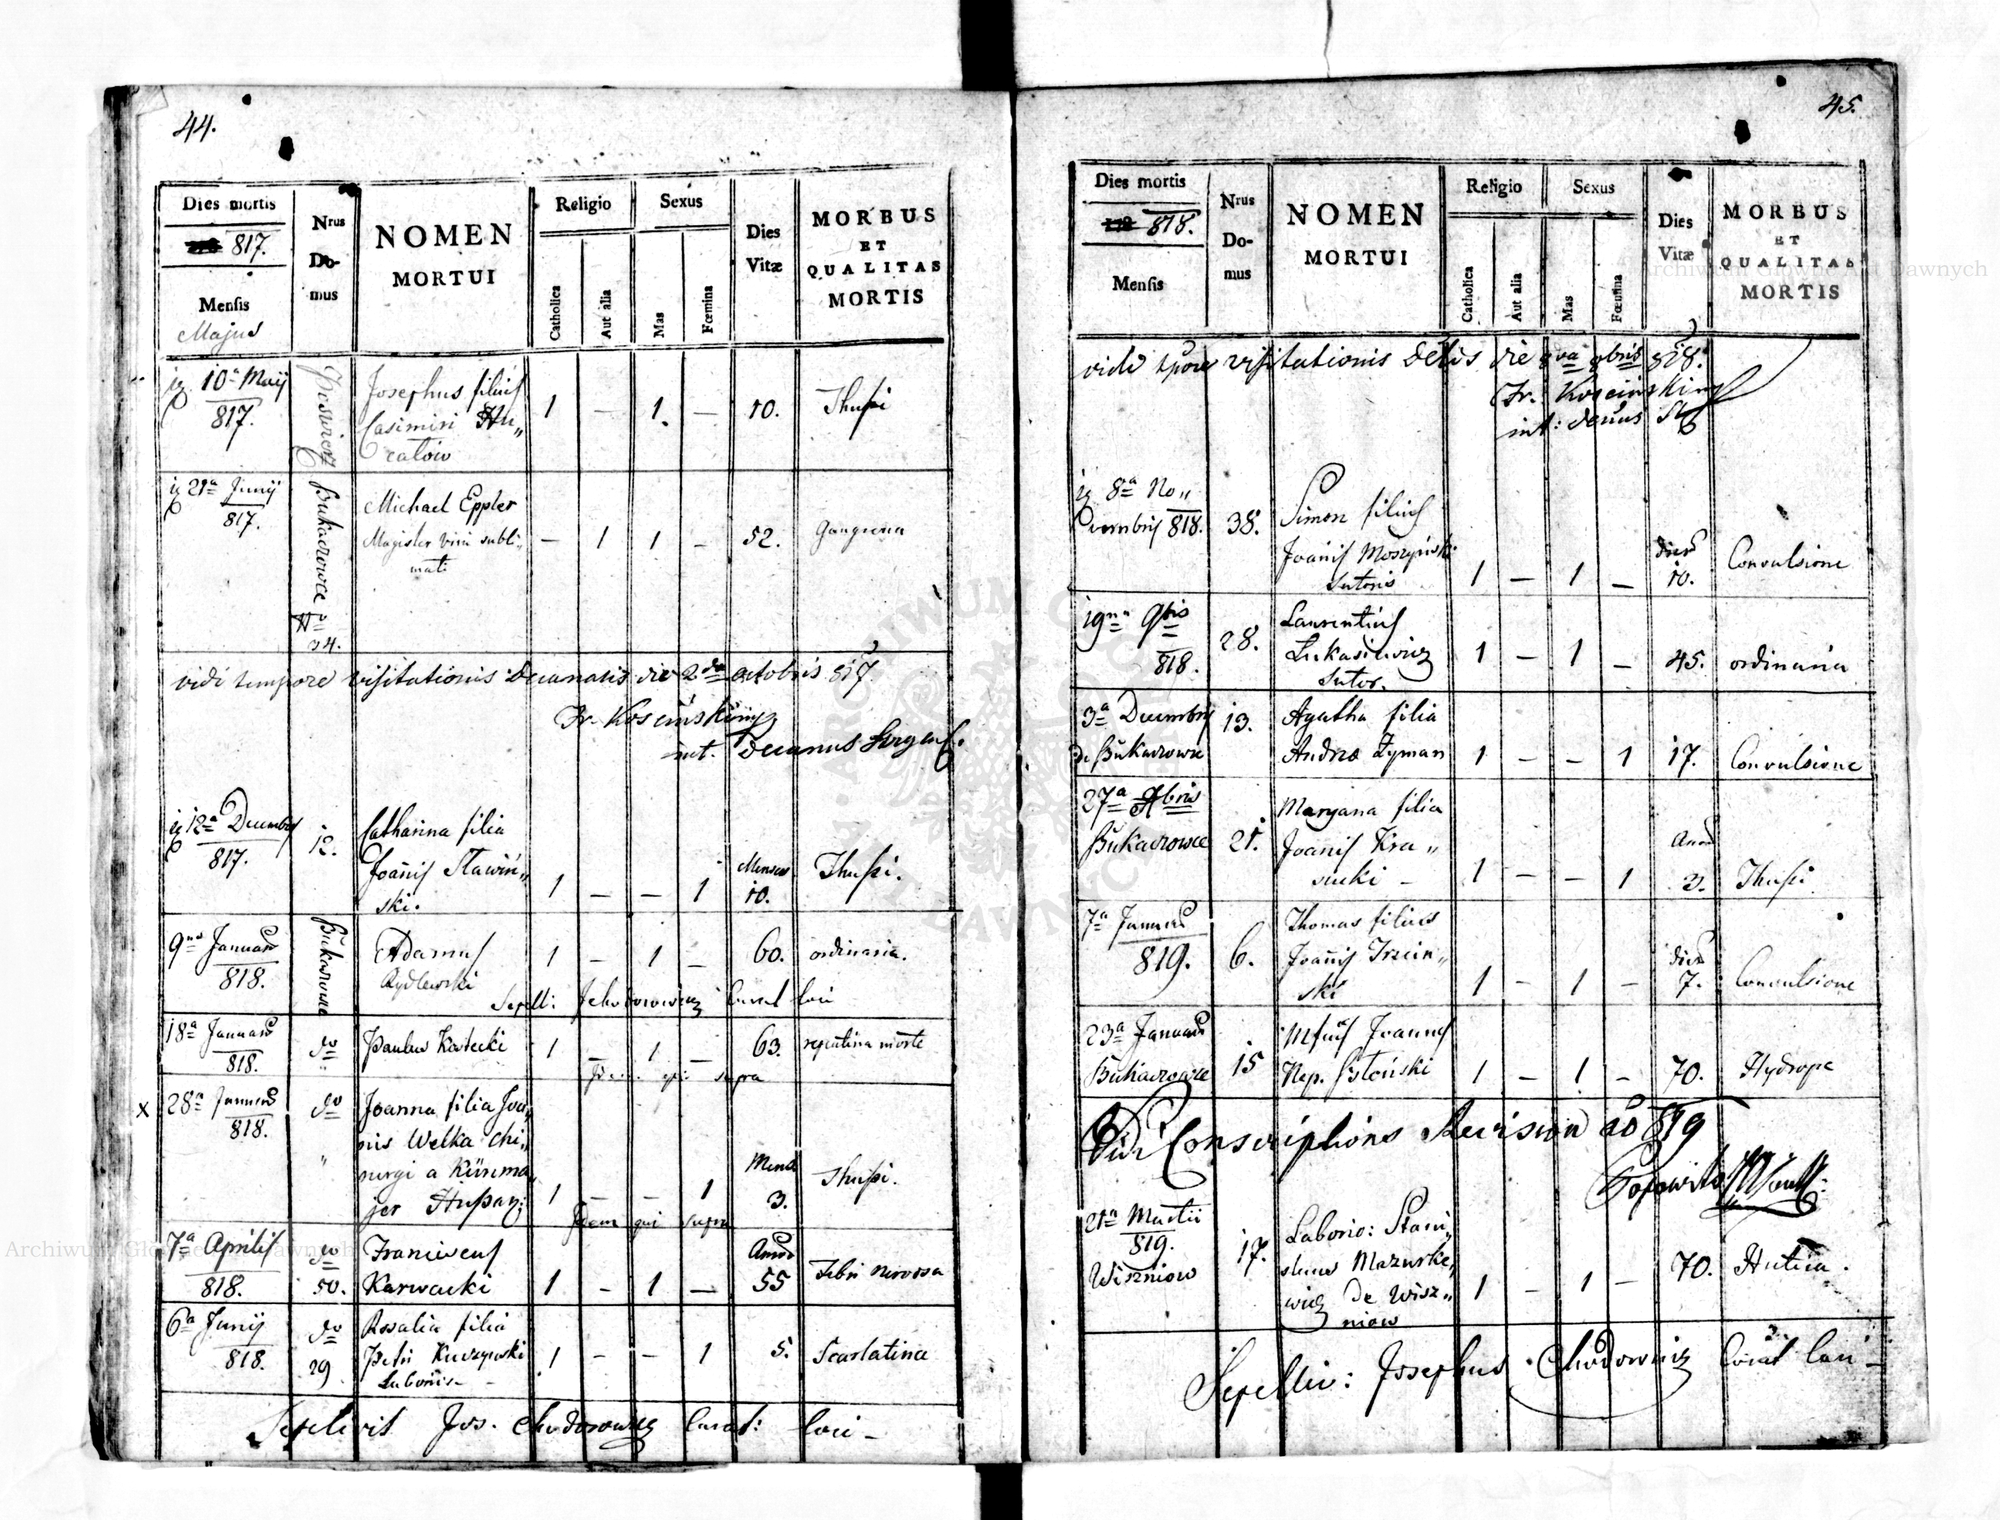 44.
Dies mortis
817.
Mensis
Majus
Nrus
Do-
mus
NOMEN
MORTUI
Religio
Catholica
Aut alia
Sexus
Mas
Fœmina
Dies
Vitæ
MORBUS
ET
QUALITAS
MORTIS
10ª Maij
817.
Josephus filius
Casimiri Hu„
catow
1 — 1. — 10. Thussi
21ª Junij
817.
Bukaczowce
No
34.
Michael Eppler
Magister vini subli„
mati
— 1 1 — 52. Gangrena
vidi tempore visitationis Decanalis die 2da octobris 817.
Fr. Kosciński
int. Decanus
12ª Decembris
817.
12.
Catharina filia
Joanis Stawiń„
ski.
1 — — 1 Menses
10. Thussi.
9na Januarii
818.
Bukaczowce
Adamus
Rydlewski
1 — 1 — 60. ordinaria.
Sepeli: Chodorowicz Curat loci
18ª Januarii
818.
do
Paulus Katecki
1 — 1 — 63. repentina morte
supra
x 28ª Januarii
818.
do
„
Joanna filia Joa„
nis Welka chi„
rurgi a Kiinma„
jer Hussar:
1 — — 1 Mens
3. Thussi.
Idem qui supra
7ª Aprilis
818.
do
50.
Franciscus
Karwacki
1 — 1 — Annor
55 Febri nervosa
6ª Junij
818.
do
29
Rosalia filia
Petri Kuczynski
Laboris
1 — — 1 5. Scarlatina
Sepelivit Jos. Chodorowicz Curat: loci —
45.
Dies mortis
818.
Mensis
Nrus
Do-
mus
NOMEN
MORTUI
Religio
Catholica
Aut alia
Sexus
Mas
Fœmina
Dies
Vitæ
MORBUS
ET
QUALITAS
MORTIS
vidi tpore visitationis Delis die 9bris 818.
Fr. Kosciński
int: Denus
8ª No„
vembris 818.
38.
Simon filius
Joanis Moszyński
Sutoris
1 — 1 — dies
10. Convulsione
19na 9bris
818.
28.
Laurentius
Lukasiewicz
Sutor.
1 — 1 — 45. ordinaria
3ª Decembris
de Bukaczowce
13.
Agatha filia
Andreæ Zyman
1 — — 1 17. Convulsione
27ª Xbris
Bukaczowce
21.
Maryana filia
Joanis Kra„
sucki —
1 — — 1 Annor
2. Thussi
7ª Januarii
819.
6.
Thomas filius
Joanis Trzciń„
ski
1 — 1 — dies
7. Convulsione
23ª Januarii
Bukaczowce
15
Joannes
Nep. Błoński
1 — 1 — 70. Hydrope
Vidi Conscriptions Revision ao 819
21na Martii
819.
Wiszniow
17.
Laborio: Stani„
slaus Mazurke„
wicz de Wisz„
niow
1 — 1 — 70. Hectica.
Sepelivi: Josephus Chodorowicz Curat loci —
Archiwum Główne Akt Dawnych